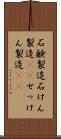 石鹸製造石けん
製造 せっけ
ん製造